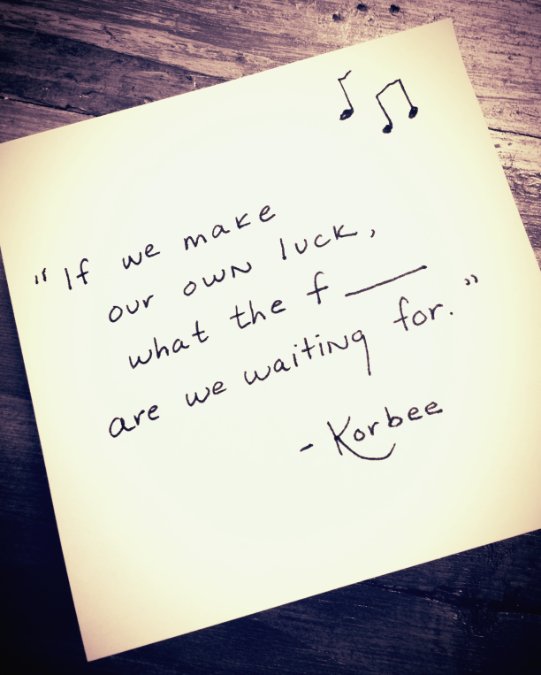 "If we make
our own luck,
what the f ____
are we waiting for."
- Korbee